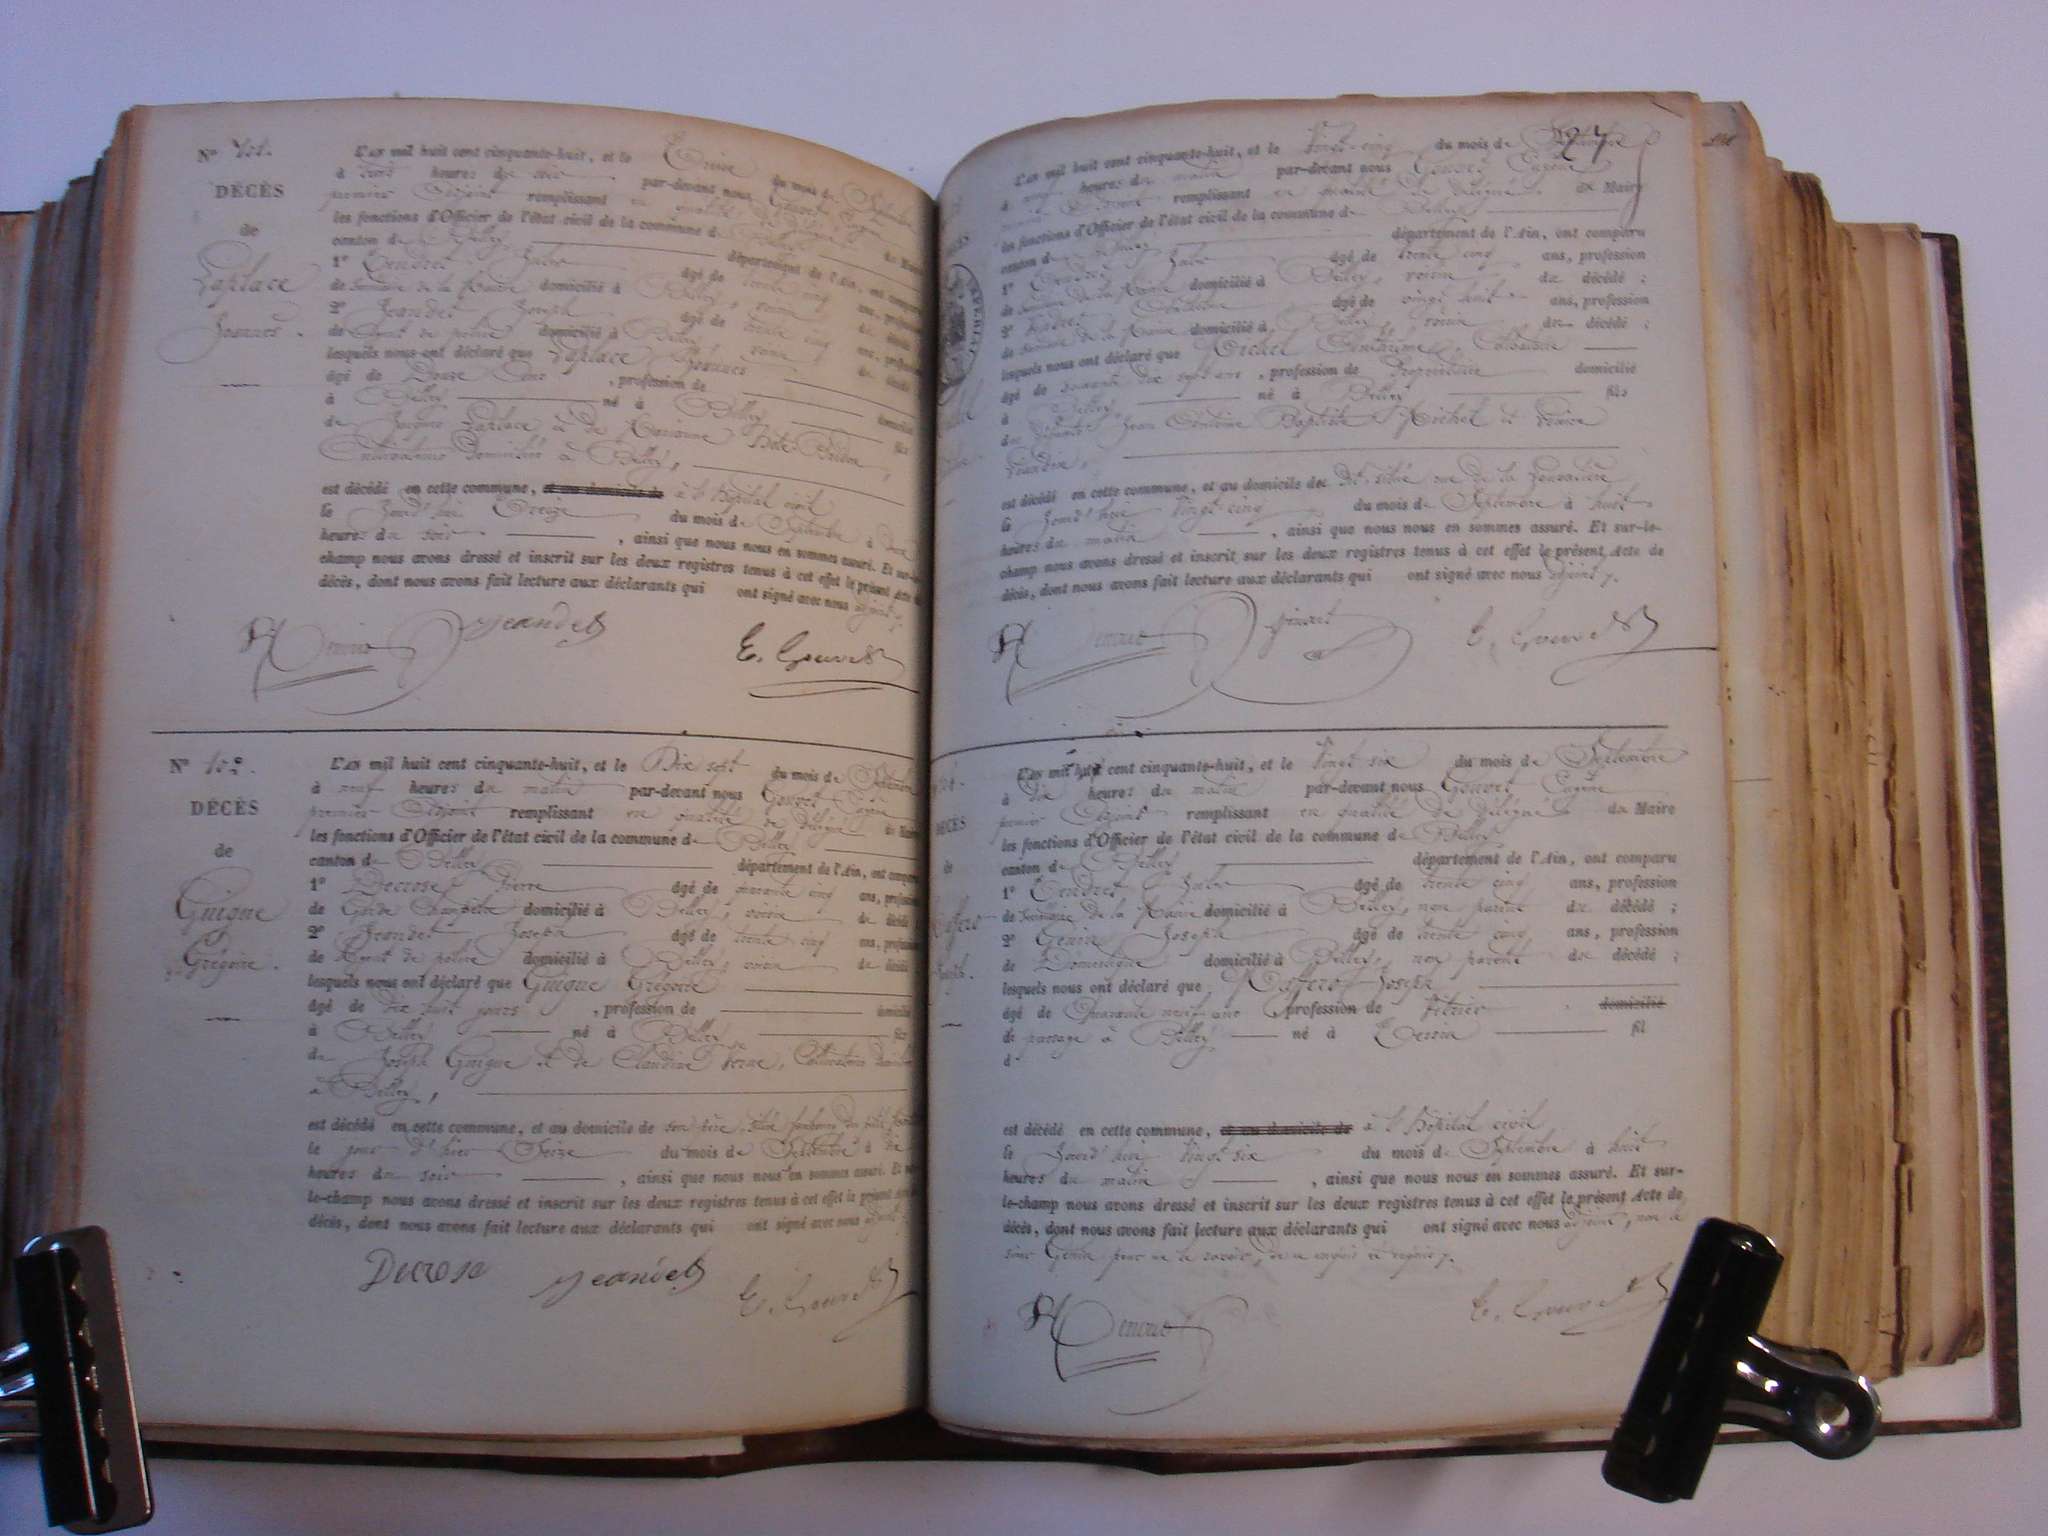 N° 101.
DÉCÈS
de
Laplace
Joannès.
L'AN mil huit cent cinquante-huit, et le Treize du mois de Septembre
à trois heures du soir par-devant nous Gouvet Eugène
premier Adjoint remplissant en qualité de Délégué du Maire
les fonctions d'Officier de l'état civil de la commune de Belley
canton de Belley département de l'Ain, ont comparu
1° Tendret Jules âgé de trente cinq ans, profession
de Secrétaire de la Mairie domicilié à Belley, voisin du décédé
2° Jeandet Joseph âgé de trente cinq ans, profession
de Agent de police domicilié à Belley voisin du décédé
lesquels nous ont déclaré que Laplace Joannès
âgé de Douze ans, profession de domicilié
à Belley né à Belley fils
de Jacques Laplace & de Marianne
Cultivateurs domiciliés à Belley,
est décédé en cette commune, et au domicile de à l'Hôpital civil
le Jourd'hui Treize du mois de Septembre à deux
heures du soir, ainsi que nous nous en sommes assuré. Et sur-le-
champ nous avons dressé et inscrit sur les deux registres tenus à cet effet le présent Acte de
décès, dont nous avons fait lecture aux déclarants qui ont signé avec nous adjoint
Jeandet
E. Gouvet
N° 102.
DÉCÈS
de
Guigue
Grégoire.
L'AN mil huit cent cinquante-huit, et le Dix sept du mois de Septembre
à neuf heures du matin par-devant nous Gouvet Eugène
premier Adjoint remplissant en qualité de Délégué du Maire
les fonctions d'Officier de l'état civil de la commune de Belley
canton de Belley département de l'Ain, ont comparu
1° Decrose Pierre âgé de quarante cinq ans, profession
de Garde Champêtre domicilié à Belley, voisin du décédé
2° Jeandet Joseph âgé de trente cinq ans, profession
de Agent de police domicilié à Belley, voisin du décédé
lesquels nous ont déclaré que Guigue Grégoire
âgé de dix huit jours, profession de domicilié
à Belley né à Belley fils
de Joseph Guigue & de Claudine Verne, Cultivateurs
à Belley,
est décédé en cette commune, et au domicile de son père
le jour d'hier Seize du mois de Septembre à dix
heures du soir, ainsi que nous nous en sommes assuré. Et sur-
le-champ nous avons dressé et inscrit sur les deux registres tenus à cet effet le présent
décès, dont nous avons fait lecture aux déclarants qui ont signé avec nous adjoint
Decrose Jeandet
E. Gouvet
L'AN mil huit cent cinquante-huit, et le Vingt-cinq du mois de Septembre
à neuf heures du matin par-devant nous Gouvet Eugène
premier Adjoint remplissant en qualité de Délégué du Maire
les fonctions d'Officier de l'état civil de la commune de Belley
canton de Belley département de l'Ain, ont comparu
1° Tendret Jules âgé de trente cinq ans, profession
de Secrétaire de la Mairie domicilié à Belley, voisin du décédé ;
2° âgé de vingt huit ans, profession
de Secrétaire de la Mairie domicilié à Belley, voisin du décédé ;
lesquels nous ont déclaré que Michel Anthelme
âgé de soixante dix sept ans, profession de Propriétaire domicilié
à Belley, né à Belley fils
de défunts Jean Antoine Baptiste Michel et
est décédé en cette commune, et au domicile de
le Jourd'hui Vingt-cinq du mois de Septembre à huit
heures du matin, ainsi que nous nous en sommes assuré. Et sur-le-
champ nous avons dressé et inscrit sur les deux registres tenus à cet effet le présent Acte de
décès, dont nous avons fait lecture aux déclarants qui ont signé avec nous adjoint
E. Gouvet
DÉCÈS
de
L'AN mil huit cent cinquante-huit, et le Vingt six du mois de Septembre
à dix heures du matin par-devant nous Gouvet Eugène
premier Adjoint remplissant en qualité de Délégué du Maire
les fonctions d'Officier de l'état civil de la commune de Belley
canton de Belley département de l'Ain, ont comparu
1° Tendret Jules âgé de trente cinq ans, profession
de Secrétaire de la Mairie domicilié à Belley, non parent du décédé ;
2° Genin Joseph âgé de trente cinq ans, profession
de Domestique domicilié à Belley, non parent du décédé ;
lesquels nous ont déclaré que Joseph
âgé de Quarante neuf ans profession de Vitrier domicilié
de passage à Belley né à fil
d
est décédé en cette commune, et au domicile de à l'Hôpital civil
le Jourd'hui Vingt six du mois de Septembre à huit
heures du matin, ainsi que nous nous en sommes assuré. Et sur-
le-champ nous avons dressé et inscrit sur les deux registres tenus à cet effet le présent Acte de
décès, dont nous avons fait lecture aux déclarants qui ont signé avec nous adjoint, non le
sieur Genin pour ne le savoir, de ce enquis et requis.
E. Gouvet